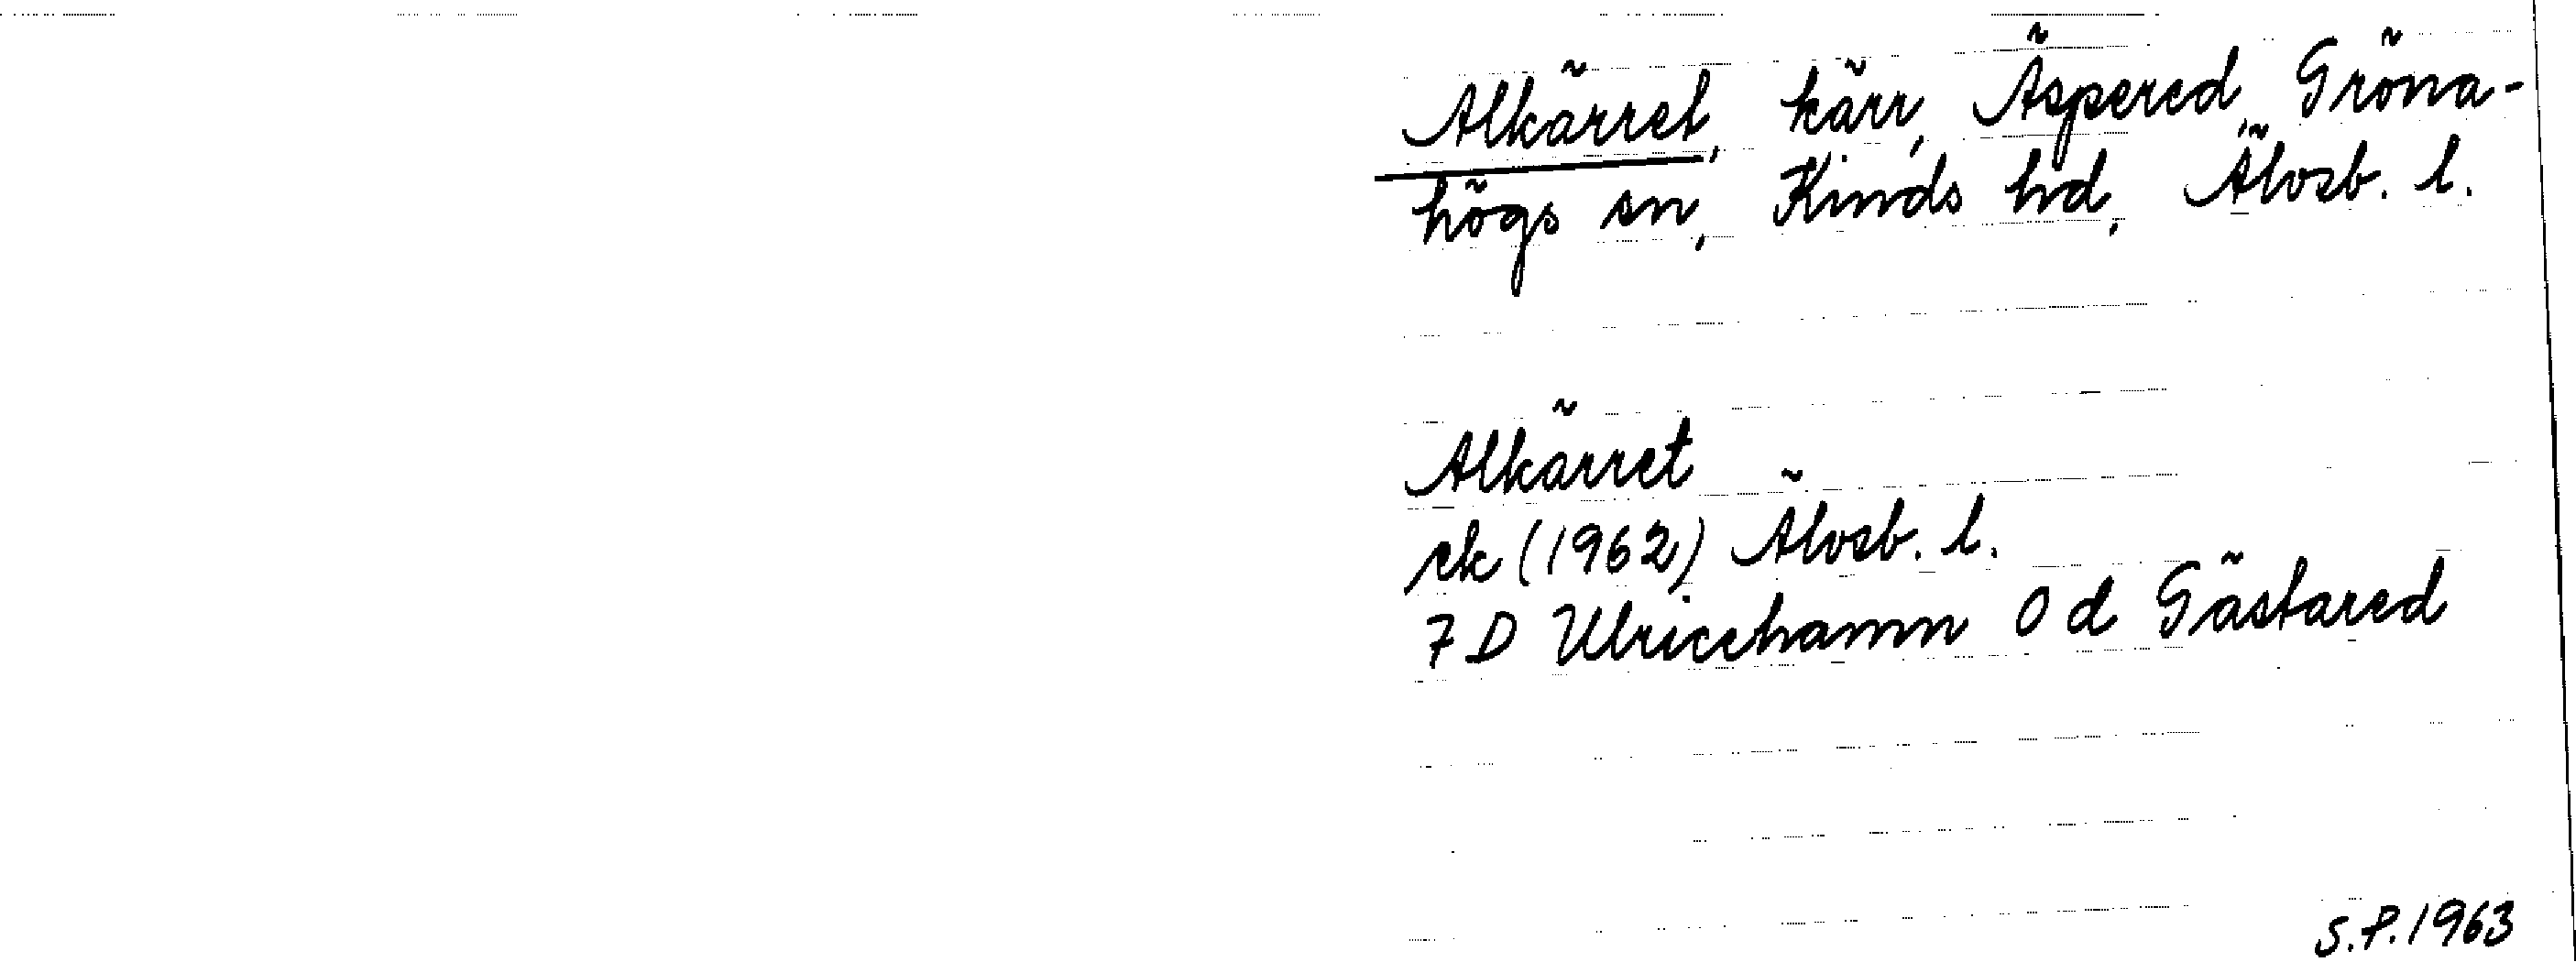 Alkärret, kärr, Äspered, Gröna-
högs sn, Kinds hd, Älvsb. l.
Alkärret
ek (1962) Älvsb. l.
7 D Ulricehamn 0 d Gästared
S.P. 1963